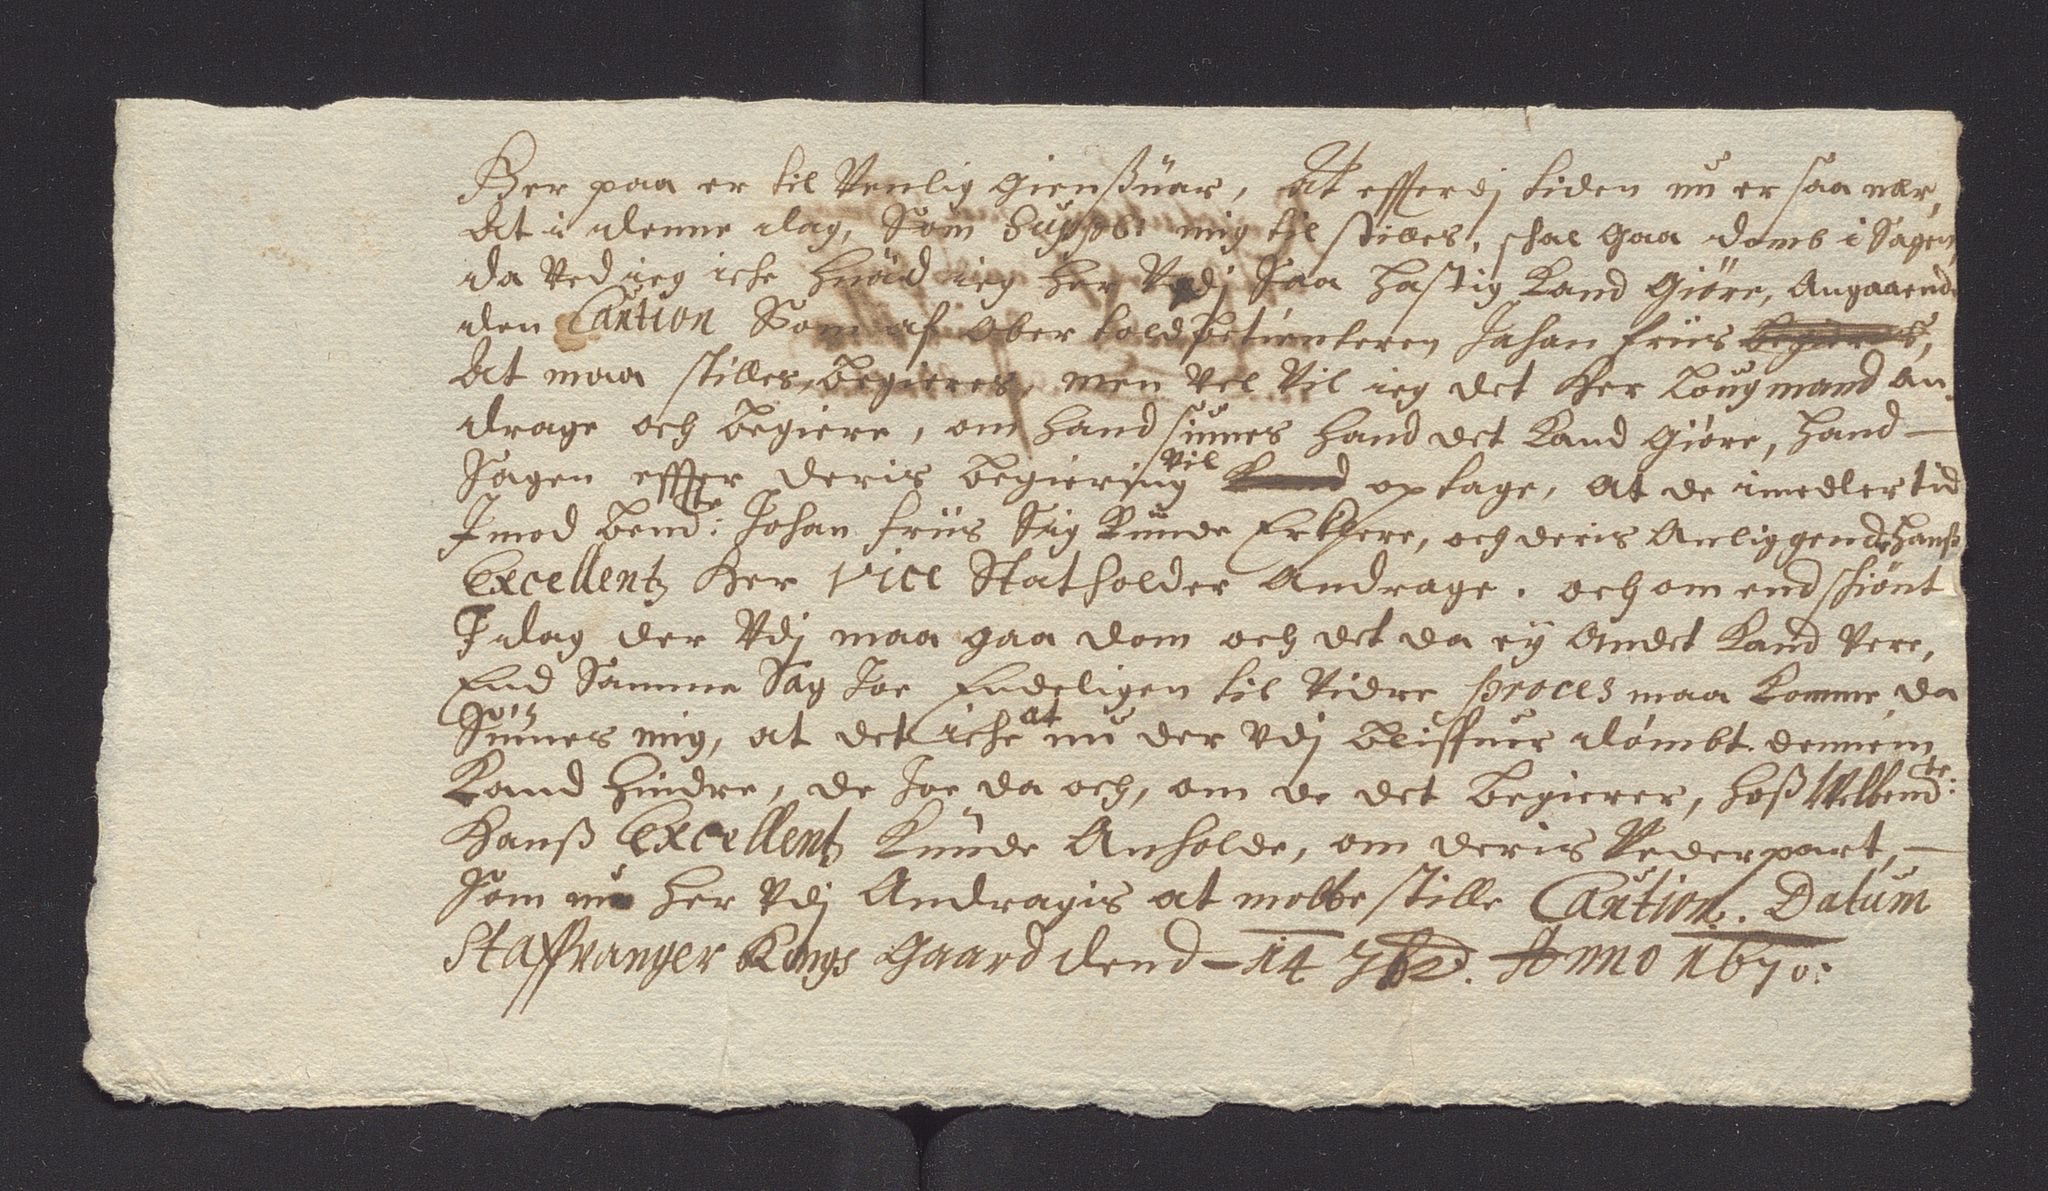 Her paa er til Venlig gienßuar, At efferdj tiden nu er saa nær,
At i denne dag, som Suppl: mig til stilles, schal gaa domb i Sagen,
da Ved ieg iche huad ieg her Vdj saa hastig kand giøre, Angaaende
den Caution Som af ober toldbetienteren Johan friis begieres,
At maa stilles, begieres, men vel vil ieg det Her Lougmand an
drage och begiere, om hand siunes hand det kand giøre, hand
Sagen effter deris begiering vil kand optage, at de imedlertid
Jmod bemdte: Johan friis Sig kunde Erklere, och deris Anliggende hanß
Excellentz Her Vice Statholder Andrage. och om endschiønt
Jdag der Vdj maa gaa dom och det da ey Andet kand Vere,
End Samme Sag Joe Endeligen til Vidre proces maa komme, da
Siunes mig, at det iche at nu der Vdj bliffuer dømbt dennem
kand hindre, de Joe da och, om de det begierer, hoß Welbemdte:
Hanß Excellentz kunde Anholde, om deris Vederpart,
som nu her Vdj Andragis at motte stille Caution. Datum
Staffvanger Kongs Gaard dend 14 7b2. Anno 1670: